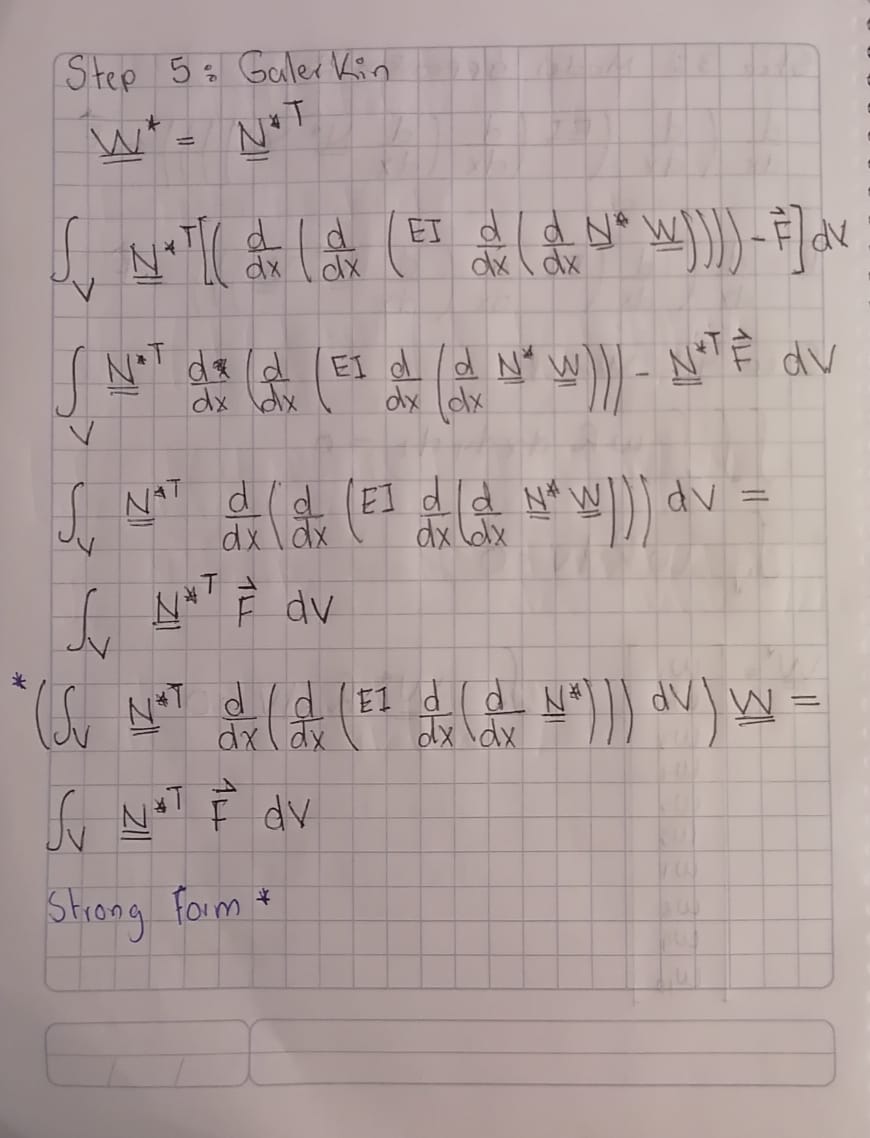 Step 5: Galerkin
W* = N*ᵀ
∫_V N*ᵀ[(d/dx (d/dx (EI d/dx (d/dx N* W)))) - F⃗] dV
∫_V N*ᵀ d/dx (d/dx (EI d/dx (d/dx N* W))) - N*ᵀ F⃗ dV
∫_V N*ᵀ d/dx (d/dx (EI d/dx (d/dx N* W))) dV =
∫_V N*ᵀ F⃗ dV
* (∫_V N*ᵀ d/dx (d/dx (EI d/dx (d/dx N*))) dV) W =
∫_V N*ᵀ F⃗ dV
Strong Form *